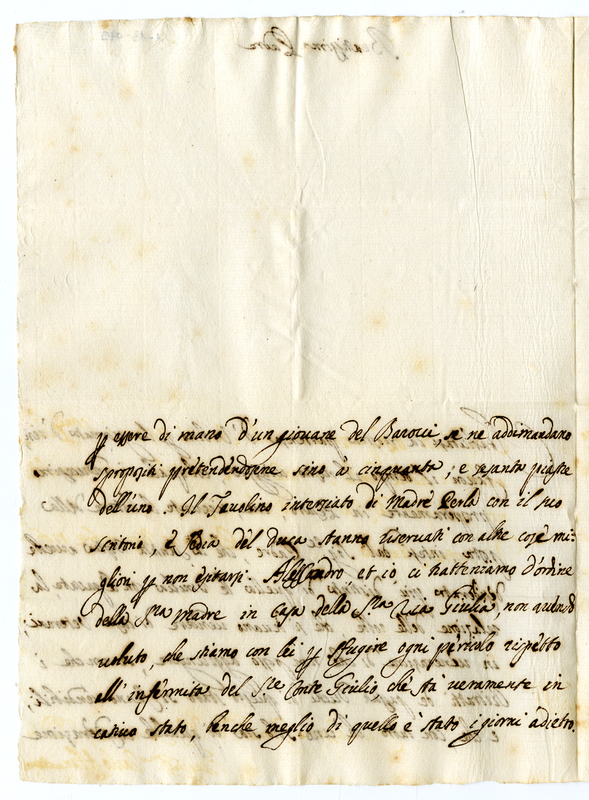 p essere di mano d'un giovane del Barocci, se ne addimandano
spropositi pretendendosene sino à cinquanta; e sessanta piastre
dell'uno. Il Tavolino intersiato di Madre Perla con il suo
scritorio è sedia del duca stanno riservati con altre cose mi:
glioni p non esitarsi. Alessandro et io ci tratteniamo d'ordine
della S.ra Madre in casa della S.ra Zia Giulia, non avendo
voluto, che stiamo con lei p sfugire ogni pericolo rispetto
all'infermità del S.re Conte Giulio, che stà veramente in
cativo stato, benche meglio di quello e stato i giorni adietro.